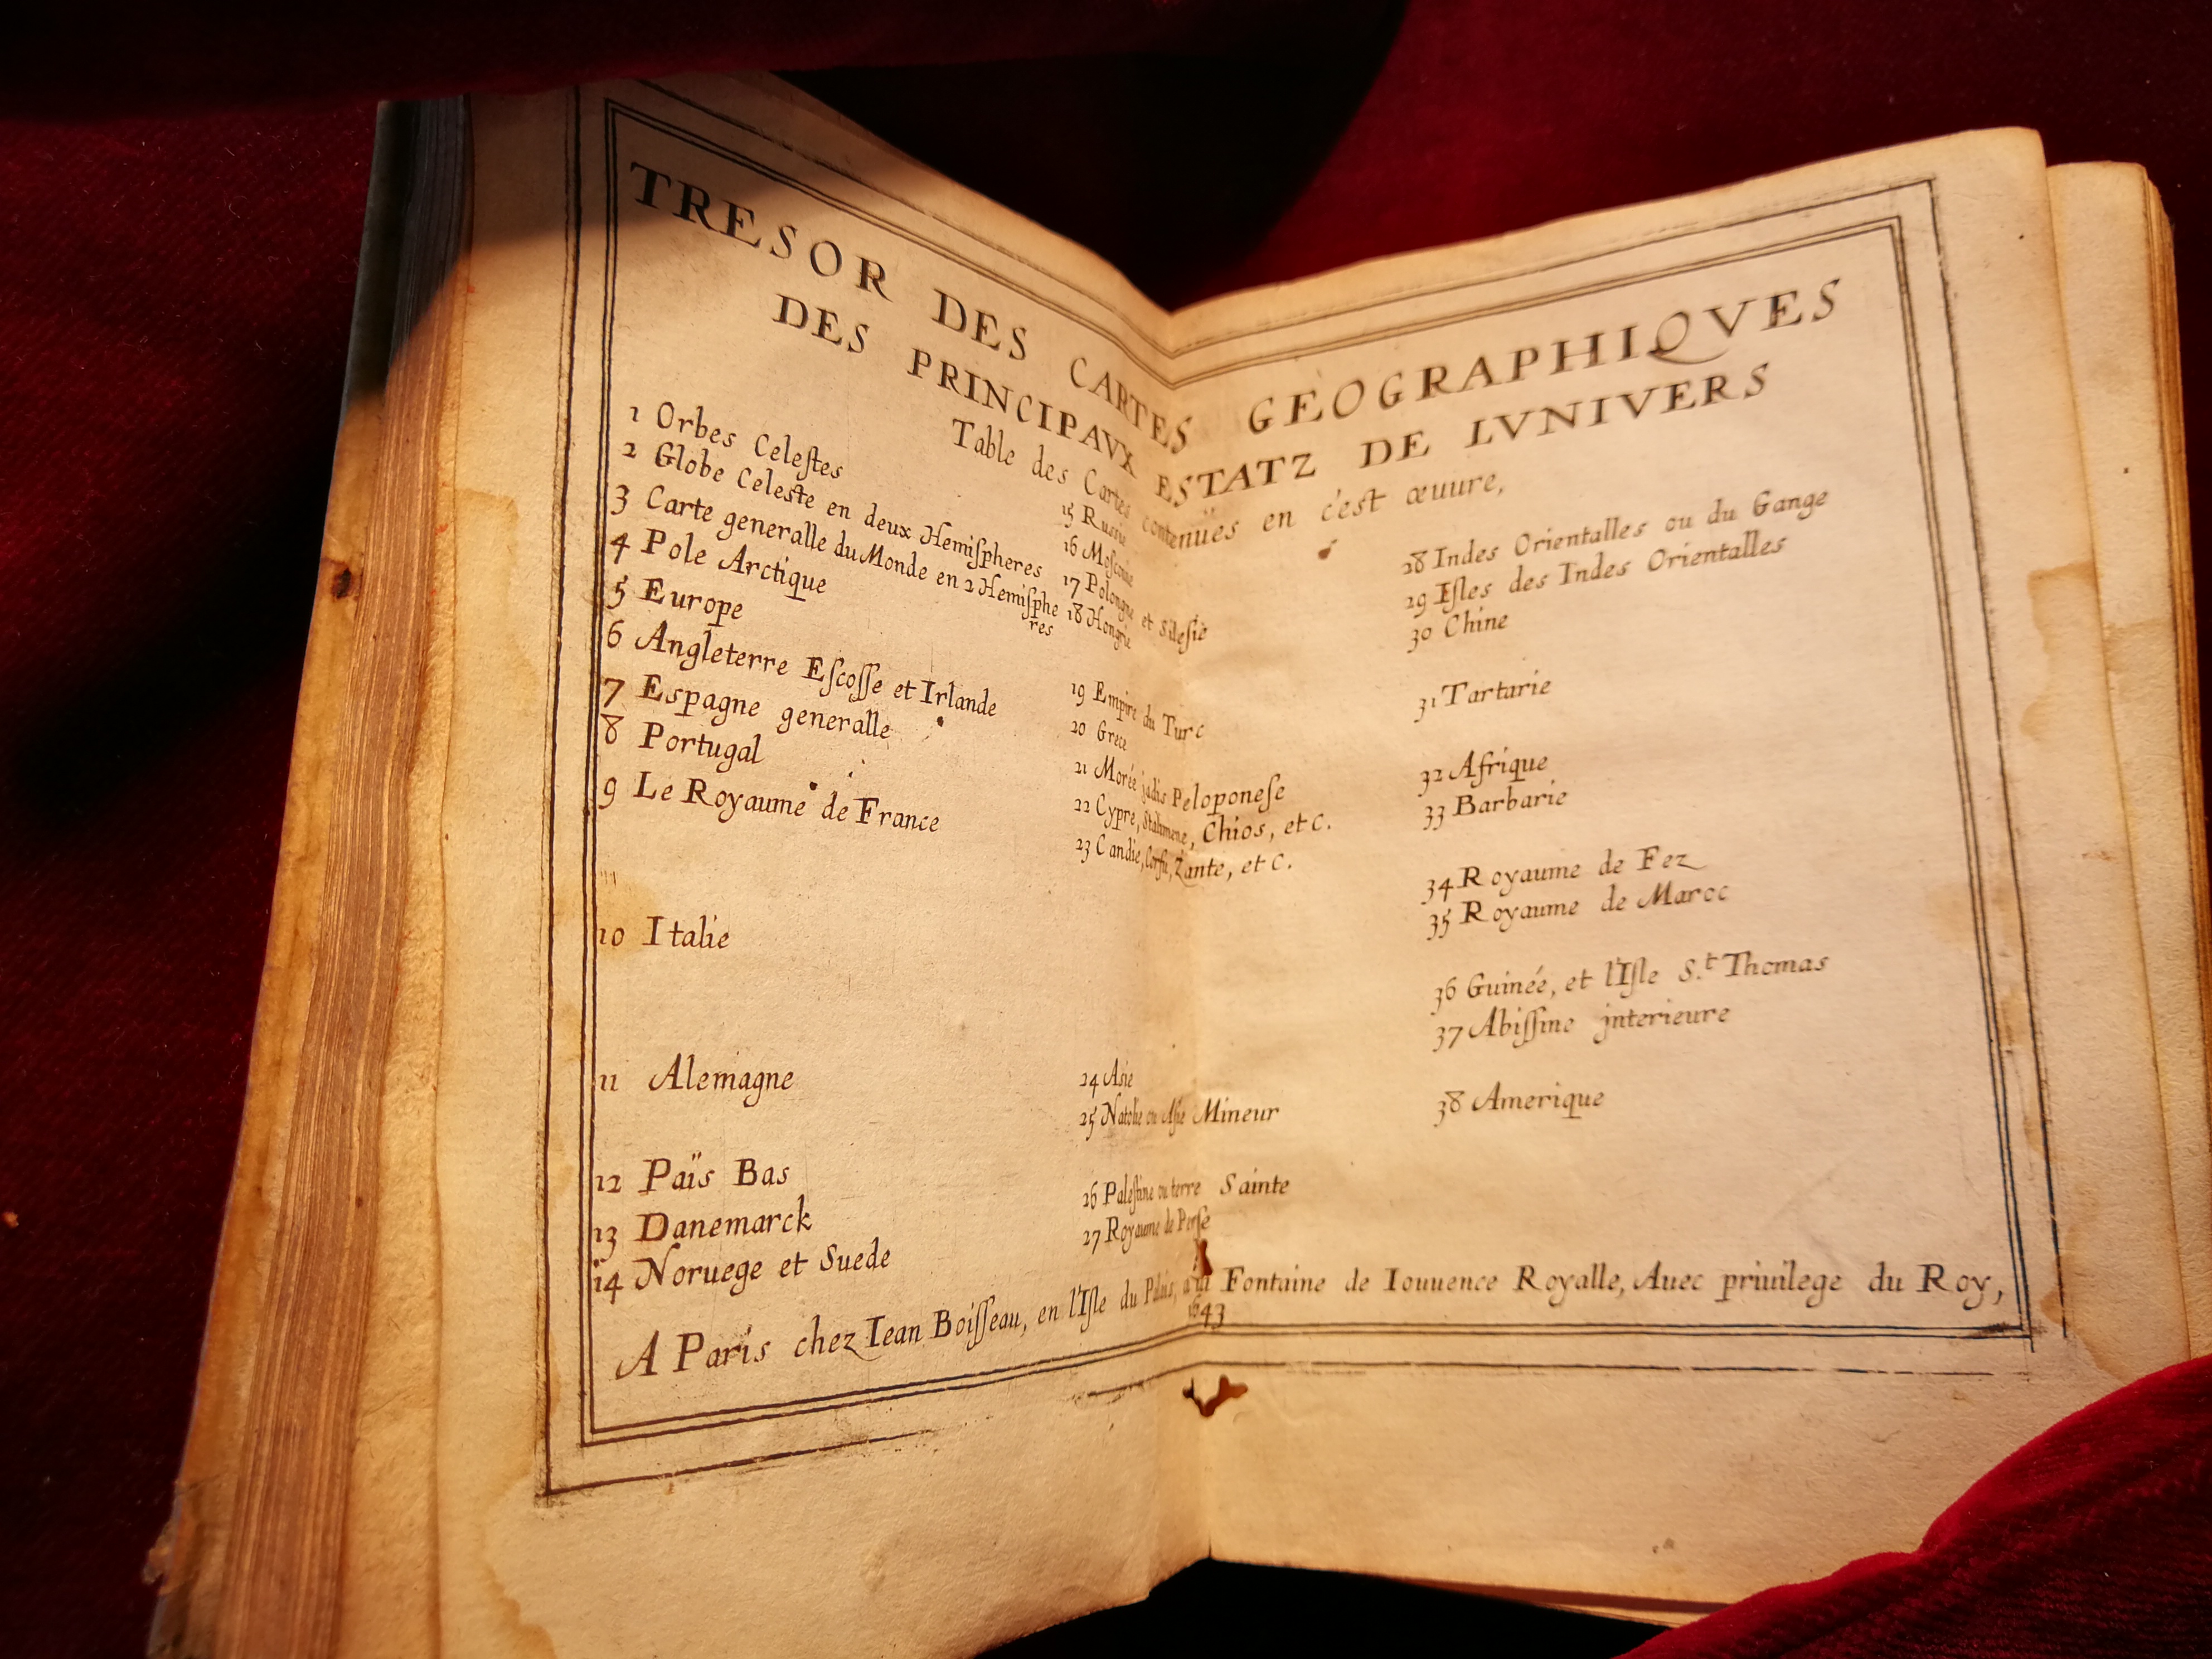 TRESOR DES CARTES GEOGRAPHIQVES
DES PRINCIPAVX ESTATZ DE LVNIVERS
Table des Cartes contenuës en c'est œuure,
1 Orbes Celeſtes
2 Globe Celeste en deux Hemiſpheres
3 Carte generalle du Monde en 2 Hemiſphe
res
4 Pole Arctique
5 Europe
6 Angleterre Eſcoſſe et Irlande
7 Espagne generalle
8 Portugal
9 Le Royaume de France
10 Italie
11 Alemagne
12 Païs Bas
13 Danemarck
14 Noruege et Suede
15 Russie
16 Moſcouie
17 Polongne et Sileſie
18 Hongrie
19 Empire du Turc
20 Grece
21 Morée jadis Peloponeſe
22 Cypre, Stalimene, Chios, et c.
23 Candie, Corfu, Zante, et c.
24 Asie
25 Natolie ou Aſie Mineur
26 Paleſtine ou terre Sainte
27 Royaume de Perſe
28 Indes Orientalles ou du Gange
29 Iſles des Indes Orientalles
30 Chine
31 Tartarie
32 Afrique
33 Barbarie
34 Royaume de Fez
35 Royaume de Maroc
36 Guinée, et l'Iſle S.t Thomas
37 Abiſſine jnterieure
38 Amerique
A Paris chez Iean Boiſſeau, en l'Iſle du Palais, a la Fontaine de Iouuence Royalle, Auec priuilege du Roy,
1643